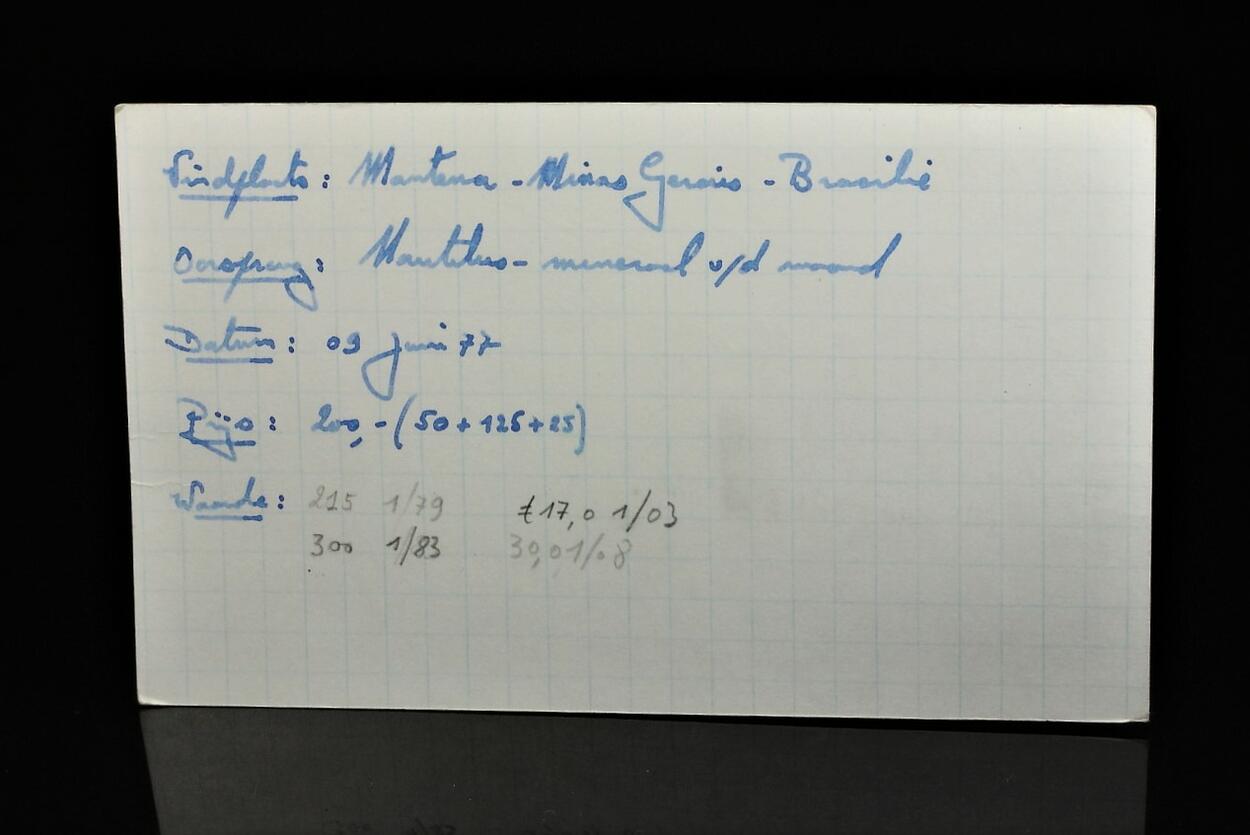 Vindplaats: Mantena - Minas Gerais - Brasilië
Oorsprong: Nautilus - mineraal v/d maand
Datum: 09 juni 77
Prijs: 200,- (50 + 125 + 25)
Waarde: 215 1/79 €17,0 1/03
300 1/83 30,0 1/08